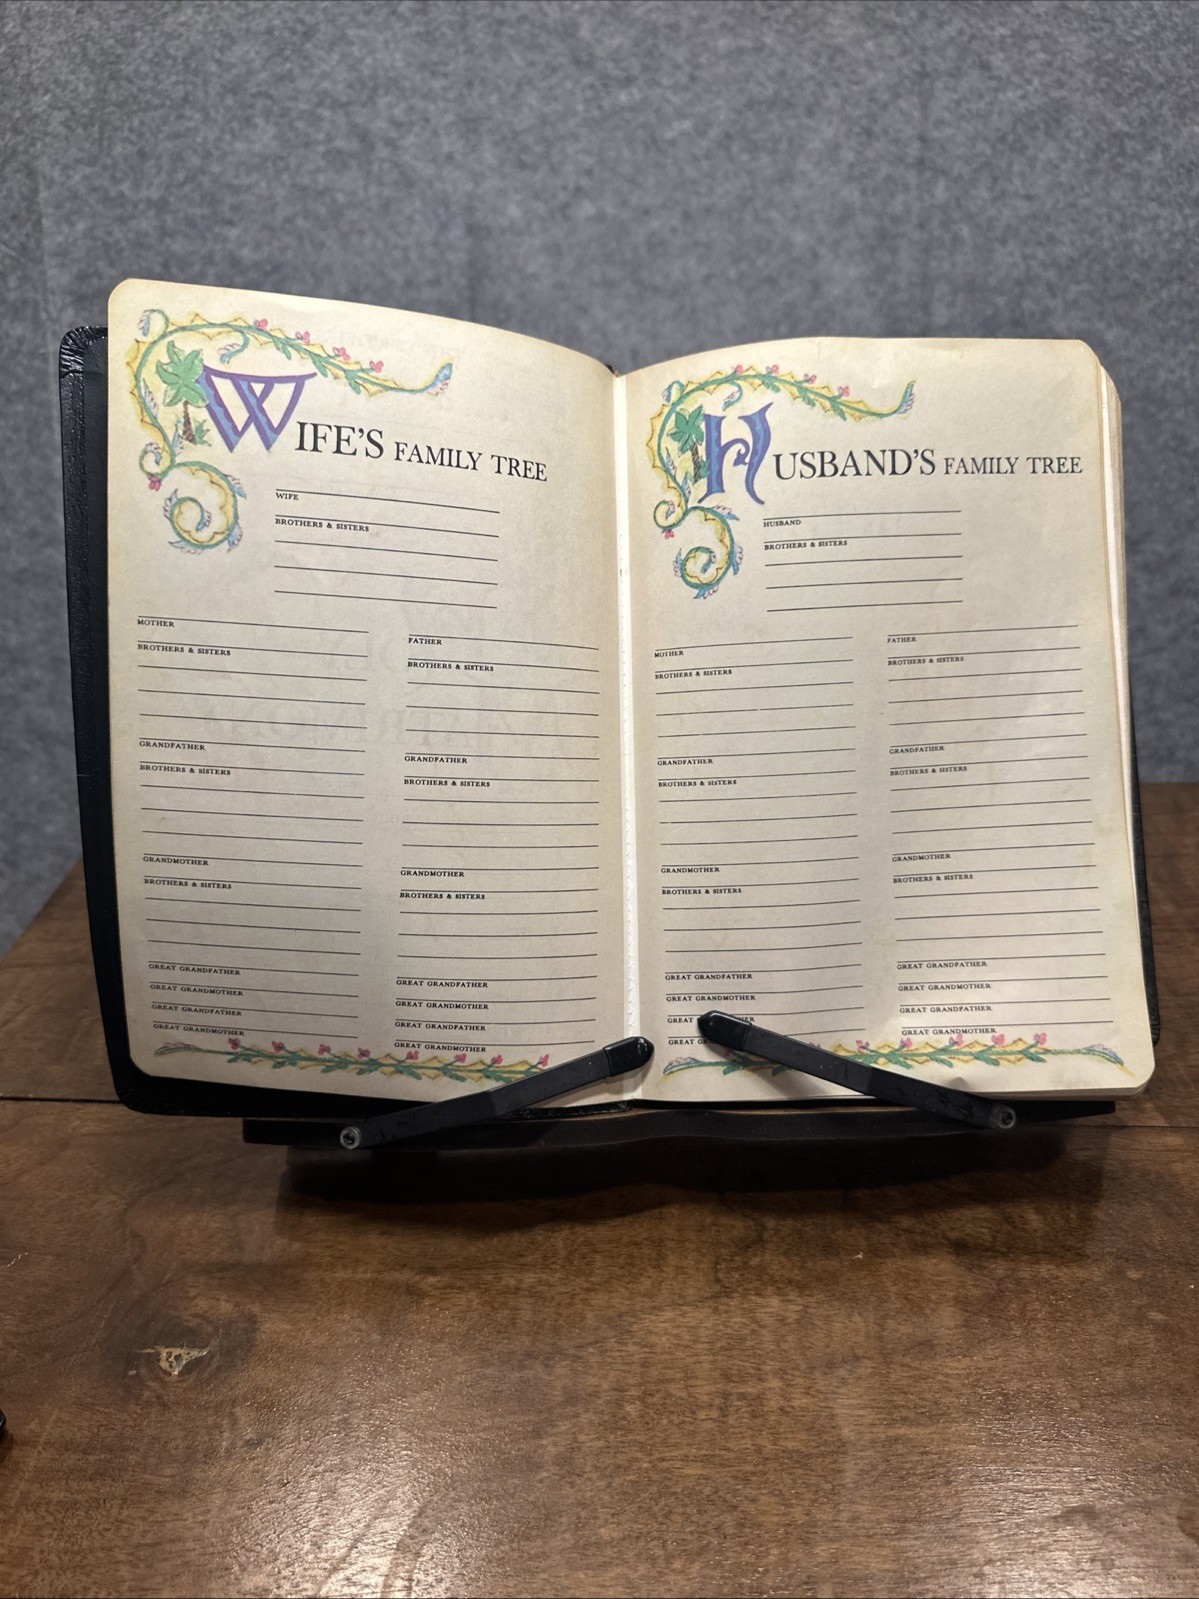 WIFE'S FAMILY TREE
WIFE
BROTHERS & SISTERS
MOTHER
BROTHERS & SISTERS
GRANDFATHER
BROTHERS & SISTERS
GRANDMOTHER
BROTHERS & SISTERS
GREAT GRANDFATHER
GREAT GRANDMOTHER
GREAT GRANDFATHER
GREAT GRANDMOTHER
FATHER
BROTHERS & SISTERS
GRANDFATHER
BROTHERS & SISTERS
GRANDMOTHER
BROTHERS & SISTERS
GREAT GRANDFATHER
GREAT GRANDMOTHER
GREAT GRANDFATHER
GREAT GRANDMOTHER
HUSBAND'S FAMILY TREE
HUSBAND
BROTHERS & SISTERS
MOTHER
BROTHERS & SISTERS
GRANDFATHER
BROTHERS & SISTERS
GRANDMOTHER
BROTHERS & SISTERS
GREAT GRANDFATHER
GREAT GRANDMOTHER
GREAT
GREAT
FATHER
BROTHERS & SISTERS
GRANDFATHER
BROTHERS & SISTERS
GRANDMOTHER
BROTHERS & SISTERS
GREAT GRANDFATHER
GREAT GRANDMOTHER
GREAT GRANDFATHER
GREAT GRANDMOTHER